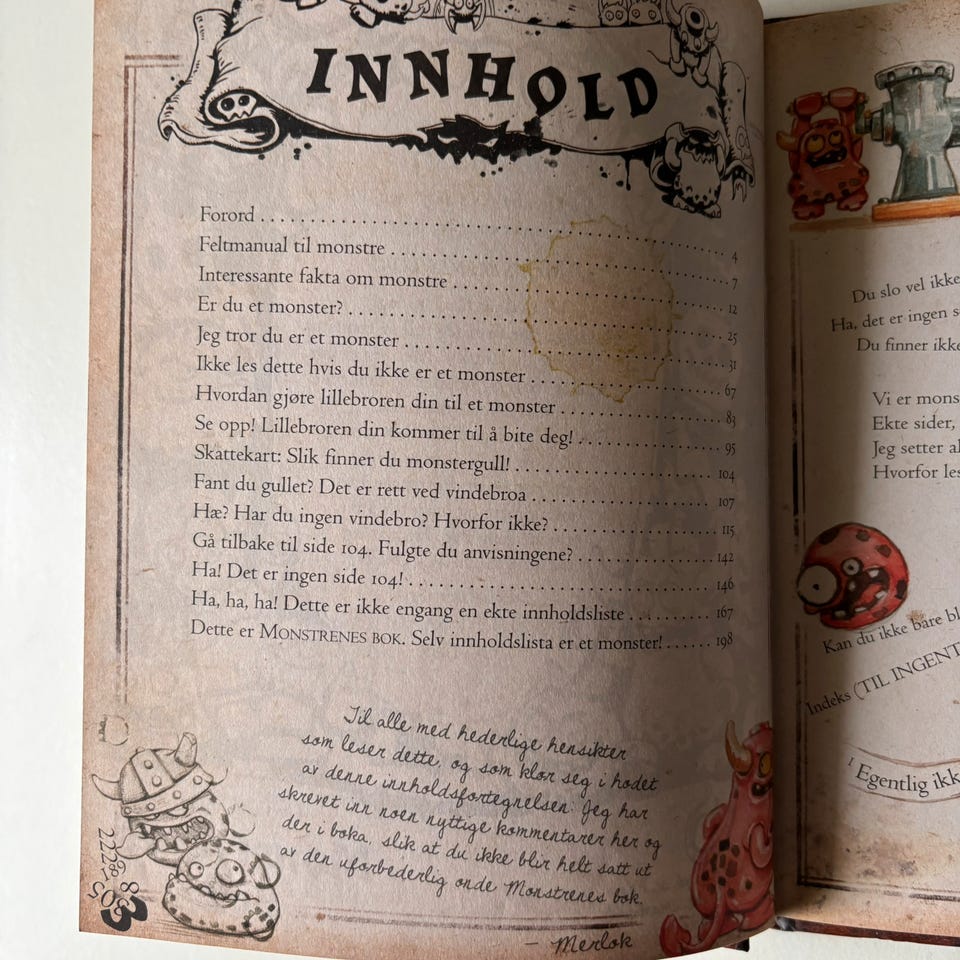 INNHOLD
Forord . . . . . . . . . . . . . . . . . . . . . . . . 4
Feltmanual til monstre . . . . . . . . . . . . . . . . . . . . 7
Interessante fakta om monstre . . . . . . . . . . . . . . . . . . 12
Er du et monster? . . . . . . . . . . . . . . . . . . . . . . 25
Jeg tror du er et monster . . . . . . . . . . . . . . . . . . . 31
Ikke les dette hvis du ikke er et monster . . . . . . . . . . . . 67
Hvordan gjøre lillebroren din til et monster . . . . . . . . . . . 83
Se opp! Lillebroren din kommer til å bite deg! . . . . . . . . . . 95
Skattekart: Slik finner du monstergull! . . . . . . . . . . . . . 104
Fant du gullet? Det er rett ved vindebroa . . . . . . . . . . . . 107
Hæ? Har du ingen vindebro? Hvorfor ikke? . . . . . . . . . . . . 115
Gå tilbake til side 104. Fulgte du anvisningene? . . . . . . . . . 142
Ha! Det er ingen side 104! . . . . . . . . . . . . . . . . . . 146
Ha, ha, ha! Dette er ikke engang en ekte innholdsliste . . . . . . 167
Dette er MONSTRENES BOK. Selv innholdslista er et monster! . . . . . . 198
Til alle med hederlige hensikter
som leser dette, og som klør seg i hodet
av denne innholdsfortegnelsen: Jeg har
skrevet inn noen nyttige kommentarer her og
der i boka, slik at du ikke blir helt satt ut
av den uforbederlig onde Monstrenes bok.
– Merlok
3
Du slo vel ikke
Ha, det er ingen s
Du finner ikke
Vi er mons
Ekte sider,
Jeg setter al
Hvorfor les
Kan du ikke bare bl
Indeks (TIL INGENT
1 Egentlig ikk